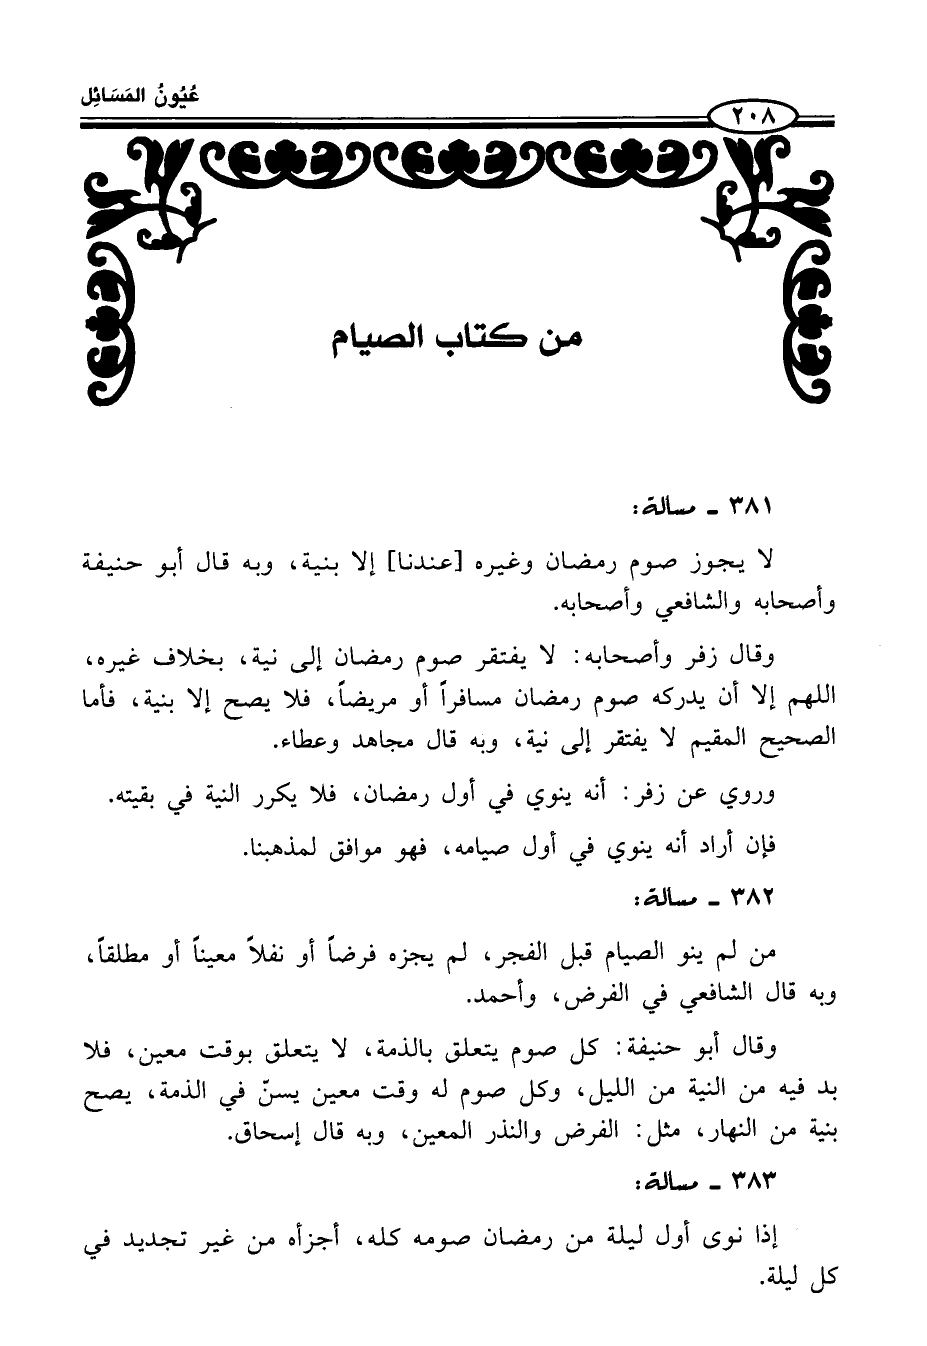 عُيُونُ المَسَائِل
٢٠٨
من كتاب الصيام
٣٨١ ـ مسالة:
لا يجوز صوم رمضان وغيره [عندنا] إلا بنية، وبه قال أبو حنيفة
وأصحابه والشافعي وأصحابه.
وقال زفر وأصحابه: لا يفتقر صوم رمضان إلى نية، بخلاف غيره،
اللهم إلا أن يدركه صوم رمضان مسافراً أو مريضاً، فلا يصح إلا بنية، فأما
الصحيح المقيم لا يفتقر إلى نية، وبه قال مجاهد وعطاء.
وروي عن زفر: أنه ينوي في أول رمضان، فلا يكرر النية في بقيته.
فإن أراد أنه ينوي في أول صيامه، فهو موافق لمذهبنا.
٣٨٢ ـ مسالة:
من لم ينو الصيام قبل الفجر، لم يجزه فرضاً أو نفلاً معيناً أو مطلقاً،
وبه قال الشافعي في الفرض، وأحمد.
وقال أبو حنيفة: كل صوم يتعلق بالذمة، لا يتعلق بوقت معين، فلا
بد فيه من النية من الليل، وكل صوم له وقت معين يسنّ في الذمة، يصح
بنية من النهار، مثل: الفرض والنذر المعين، وبه قال إسحاق.
٣٨٣ ـ مسالة:
إذا نوى أول ليلة من رمضان صومه كله، أجزأه من غير تجديد في
كل ليلة.